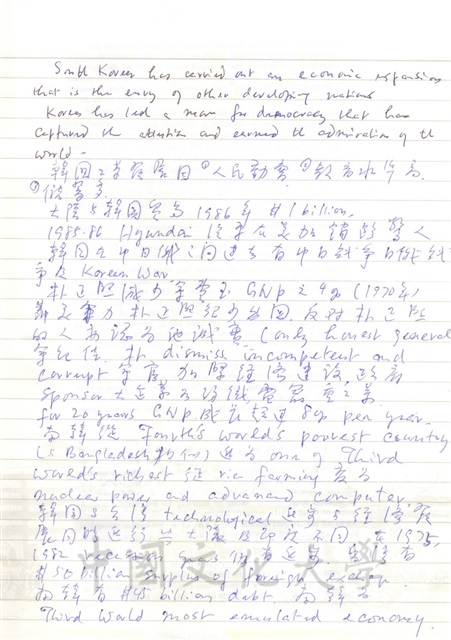 South Korea has carried out an economic expansion
that is the envy of other developing nations
Korea has led a move for democracy that has
captured the attention and earned the admiration of the
world.
韓國工業發達因①人民勤奮②教育水準高
③儲蓄多
大陸與韓國貿易1986年 #1 billion.
1985-86 Hyundai 汽車在美加銷路驚人
韓國在中日俄之間過去有中日戰爭日俄戰
爭及 Korean War
朴正熙減少軍費至 GNP 之4% (1970年)
朴正熙
的人亦認為他誠實 (only honest general
朴 dismiss incompetent and
corrupt 軍官 加緊經濟建設, 政府
sponsor 大企業
for 20 years GNP 成長超過 8% per year.
南韓從 Fourth's world's poorest country
(與 Bangladesh 相似) 進為 one of Third
world's richest 從 rice farming 變為
nuclear power and advanced computer
韓國與台灣 technological 進步與經濟發
展同時進行 與大陸及印度不同, 在1975,
1982 recession
#50 billion surplus of foreign exchange
南韓有 #45 billion debt. 南韓為
Third World most emulated economy.
中國文化大學